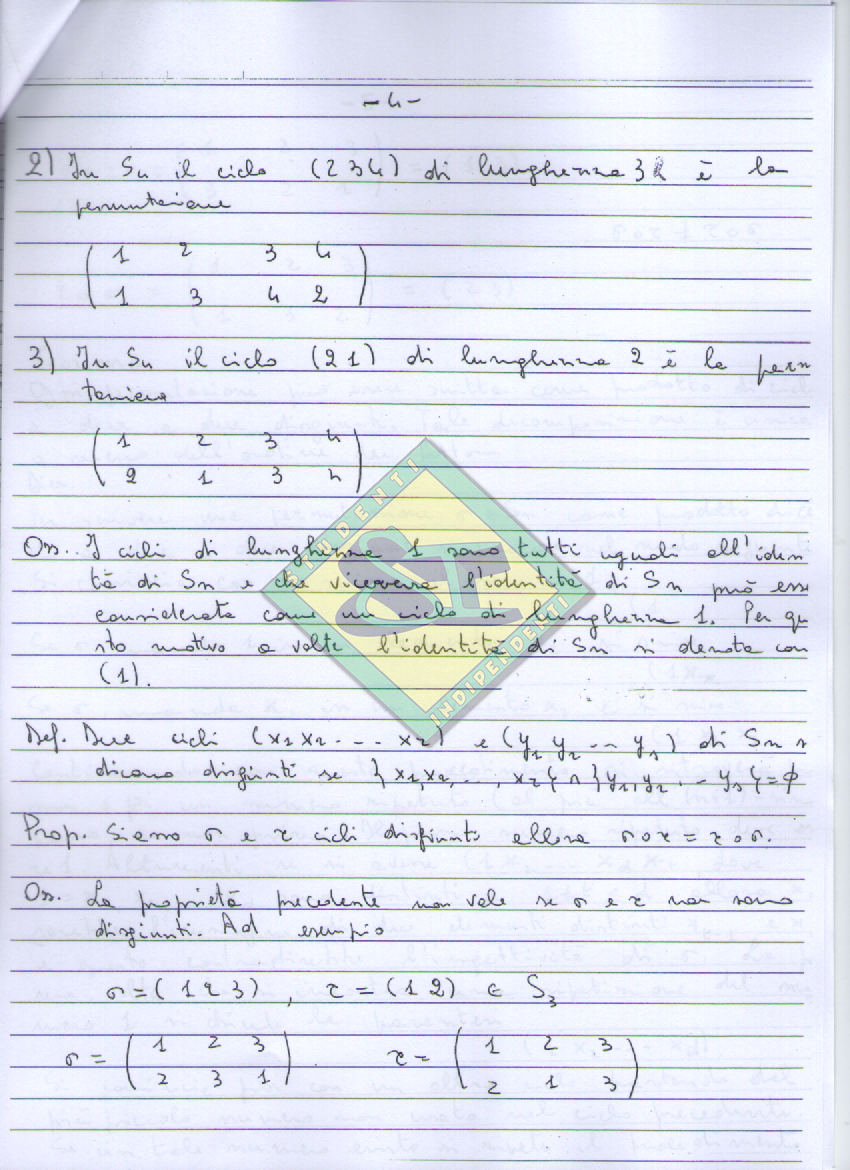 - 4 -
2) In S4 il ciclo (2 3 4) di lunghezza 3 è la
permutazione
( 1 2 3 4
1 3 4 2 )
3) In S4 il ciclo (2 1) di lunghezza 2 è la perm
tazione
( 1 2 3 4
2 1 3 4 )
Oss. I cicli di lunghezza 1 sono tutti uguali all'iden
tà di Sn e che viceversa l'identità di Sn può esse
considerata come un ciclo di lunghezza 1. Per qu
sto motivo a volte l'identità di Sn si denota con
(1).
Def. Due cicli (x1 x2 ... xr) e (y1 y2 ... ys) di Sn s
dicono disgiunti se {x1, x2, ... xr} ∩ {y1, y2 ... ys} = ϕ
Prop. Siano σ e τ cicli disgiunti allora σ∘τ = τ∘σ.
Oss. La proprietà precedente non vale se σ e τ non sono
disgiunti. Ad esempio
σ = (1 2 3) , τ = (1 2) ∈ S3
σ = ( 1 2 3 τ = ( 1 2 3
2 3 1 ) 2 1 3 )
STUDENTI
SI
INDIPENDENTI